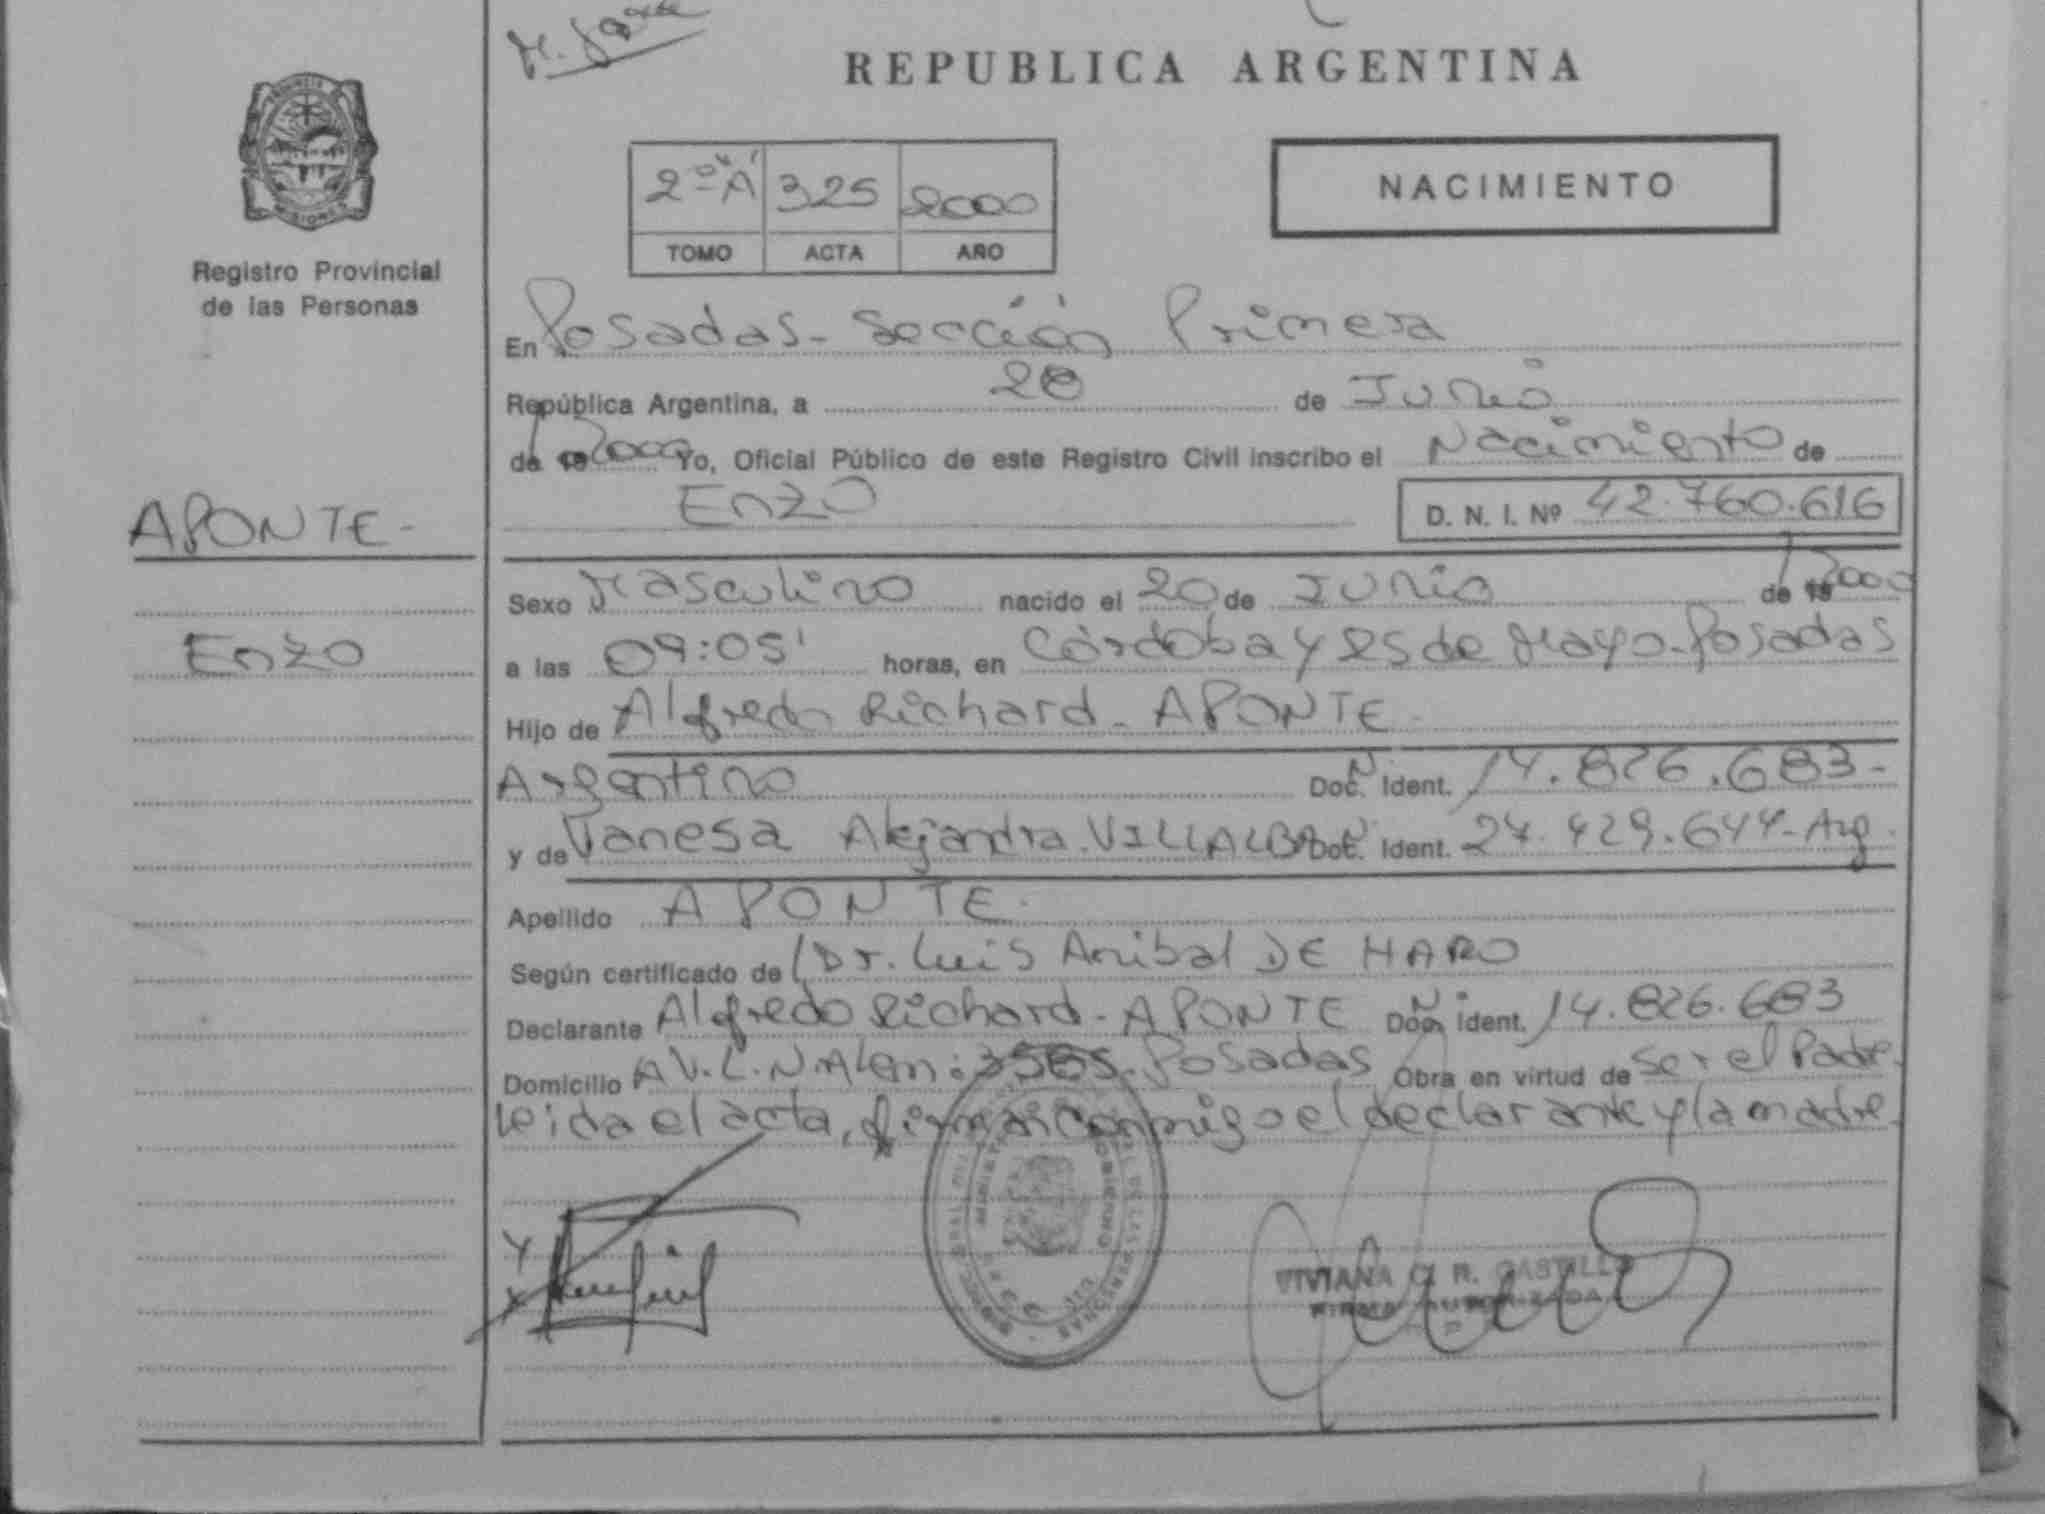 REPUBLICA ARGENTINA
2º "A" 325 2000
TOMO ACTA AÑO
NACIMIENTO
PROVINCIA
MISIONES
Registro Provincial
de las Personas
APONTE -
Enzo
En Posadas - Sección Primera
República Argentina, a 28 de Junio
de 2000 Yo, Oficial Público de este Registro Civil inscribo el Nacimiento de
Enzo D. N. I. Nº 42.760.616
Sexo Masculino nacido el 20 de Junio de 2000
a las 09:05' horas, en Córdoba y 25 de Mayo - Posadas
Hijo de Alfredo Richard - APONTE -
Argentino Doc. N. Ident. 14.826.683 -
y de Vanesa Alejandra. VILLALBA Doc. N. Ident. 24.429.644 - Arg.
Apellido APONTE.
Según certificado de Dr. Luis Anibal DE HARO
Declarante Alfredo Richard - APONTE Doc. N. Ident. 14.826.683
Domicilio AV. L. N. Alem: Posadas Obra en virtud de ser el Padre.
leida el acta, firman conmigo el declarante y la madre.
VIVIANA R. CASTILLO
FIRMA AUTORIZADA